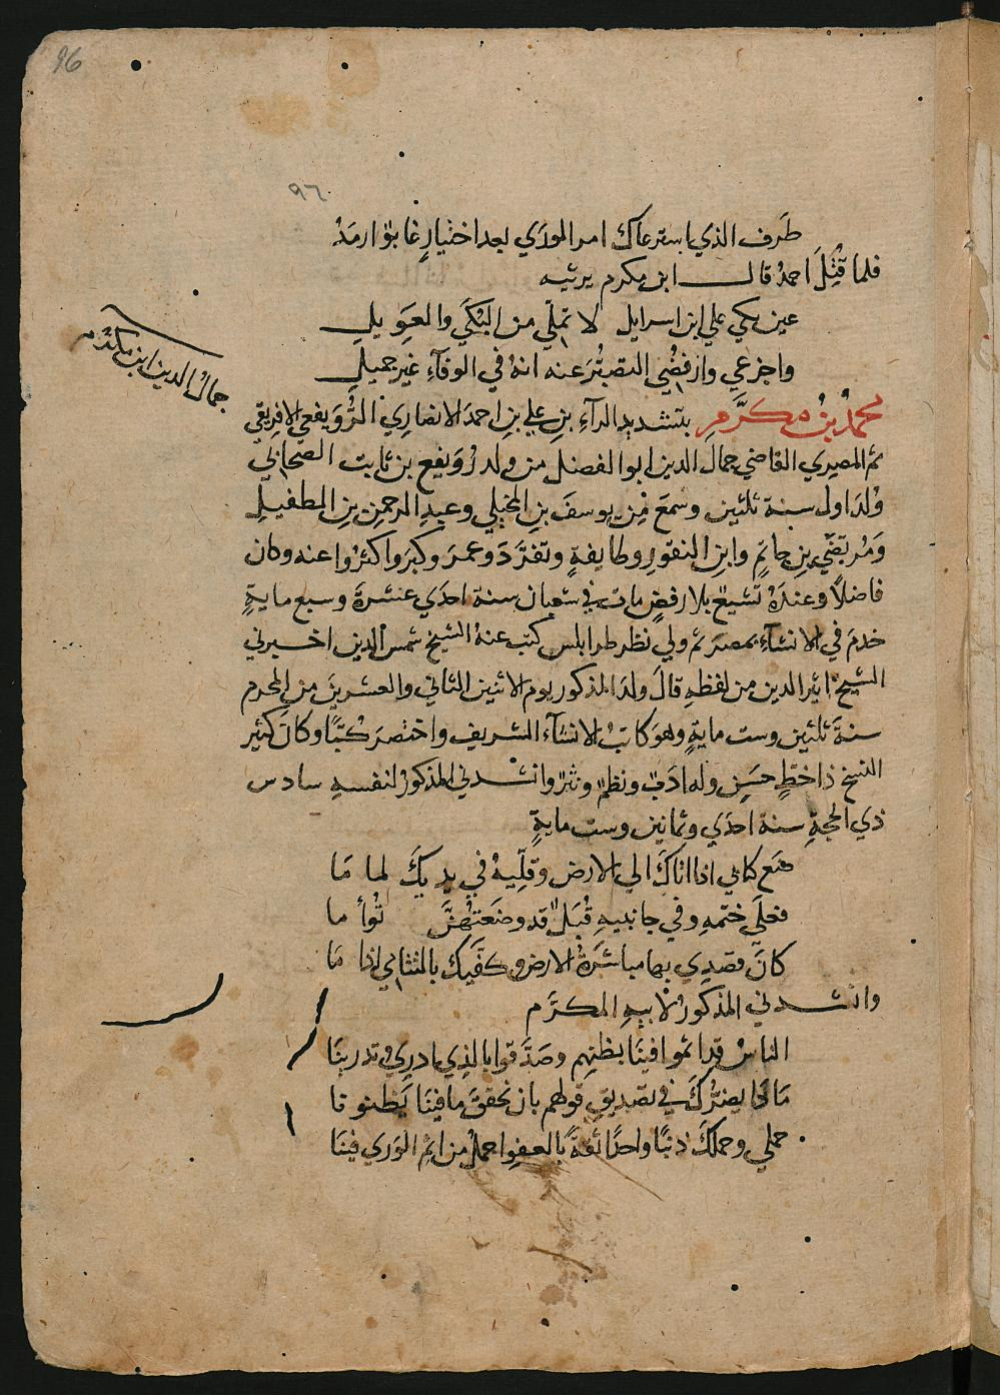 96
٩٦
طَرف الذي استرعاك امر المورَي بعد اختيارٍ غابوا ارمَدُ
فلما قُتِلَ احمدُ قال ابن مكرم يرثيه
عين بكي علي ابن اسرايل لا تملّي من البُكَي والعَوِيلِ
واجزعي وارفضُي التصبُّرَ عنه انهُ في الوفآءِ غير جميلِ
جمال الدين ابن مكرم
محمدُ بنُ مكرَّمِ بتشديد الرآءِ بنِ علي بنِ احمدَ الانصارِي الرُّوَيفعي الافريقي
ثم المصري القاضي جمال الدين ابو الفضل من ولد رُوَيفع بن ثابت الصحابي
وُلدَ اول سنة ثلثين وسمعَ مِن يوسفَ بنِ المخيلي وعبدِ الرحمن بنِ الطفيلِ
وَمُرتضَي بنِ حاتمٍ وابنِ المقيرِ وطايفةٍ وتفرَّدَ وعمرَ وكبرَ واكثرُوا عنه وكان
فاضلًا وعندَهُ تشيعٌ بلا رفضٍ مات في شعبان سنة احدَي عشرةَ وسبع مايةٍ
خدمَ في الانشآءِ بمصرَ ثم ولي نظر طرابلس كتب عنهُ الشيخ شمس الدين اخبرني
الشيخ اثير الدين من لفظهِ قالَ ولدَ المذكور يوم الاثنين الثاني والعشرينَ من المحرم
سنةَ ثلثين وست مايةٍ وهوَ كاتبُ الانشآءِ الشريف واختصرَ كتبًا وكانَ كثير
النسخ ذا خطٍّ حسَنٍ وله ادبٌ ونظمٌ ونثرٌ وانشدني المذكورُ لنفسهِ سادس
ذي الحجةِ سنة احدَي وثمانين وست مايةٍ
ضَع كتابي اذا اتاكَ الي الارض وقلِّبهُ في يديكَ لما مَا
فعلَي ختمهِ وفي جانبيهِ قُبَلٌ قد وضَعتُهُنَّ تُوأ ما
كانَ قصدِي بها مباشرَةُ الارض وكفَّيكَ بالتثامي اذا مَا
وانشدني المذكورُ لابيهِ المكرَّم
الناسُ قد اثموا فينَا بظنهِم وصَدَّقوا بالذِي ادرِي وتدرينَا
مَاذا يضرُّكَ في تصديقِ قولهم بان نحققَ ما فينَا يَظنونا
حملي وحملكَ ذنبًا واحدًا ثقةً بالعفوِ اجملُ من اثمِ الوَرَي فينَا